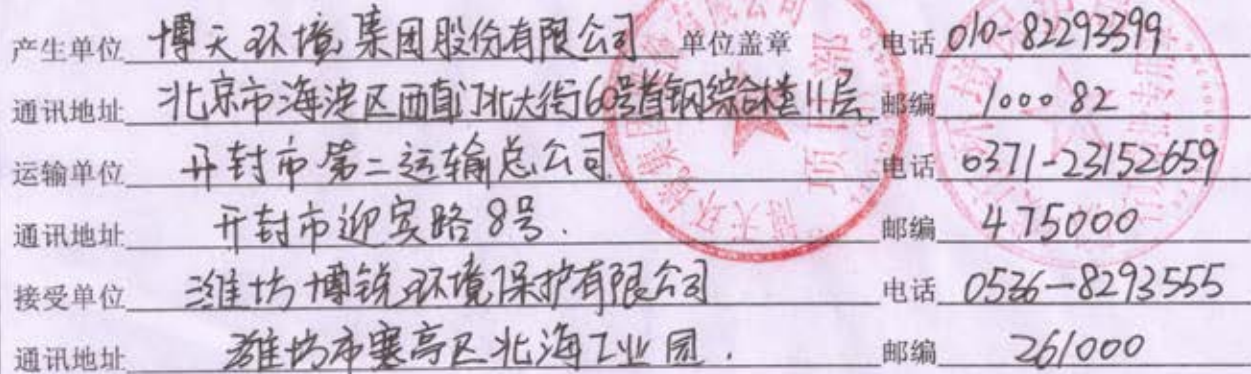 产生单位 博天环境集团股份有限公司 单位盖章 电话 010-82293399
通讯地址 北京市海淀区西直门北大街60号首钢综合楼11层 邮编 100082
运输单位 开封市第二运输总公司 电话 0371-23152659
通讯地址 开封市迎宾路8号. 邮编 475000
接受单位 潍坊博锐环境保护有限公司 电话 0536-8293555
通讯地址 潍坊市寒亭区北海工业园. 邮编 261000